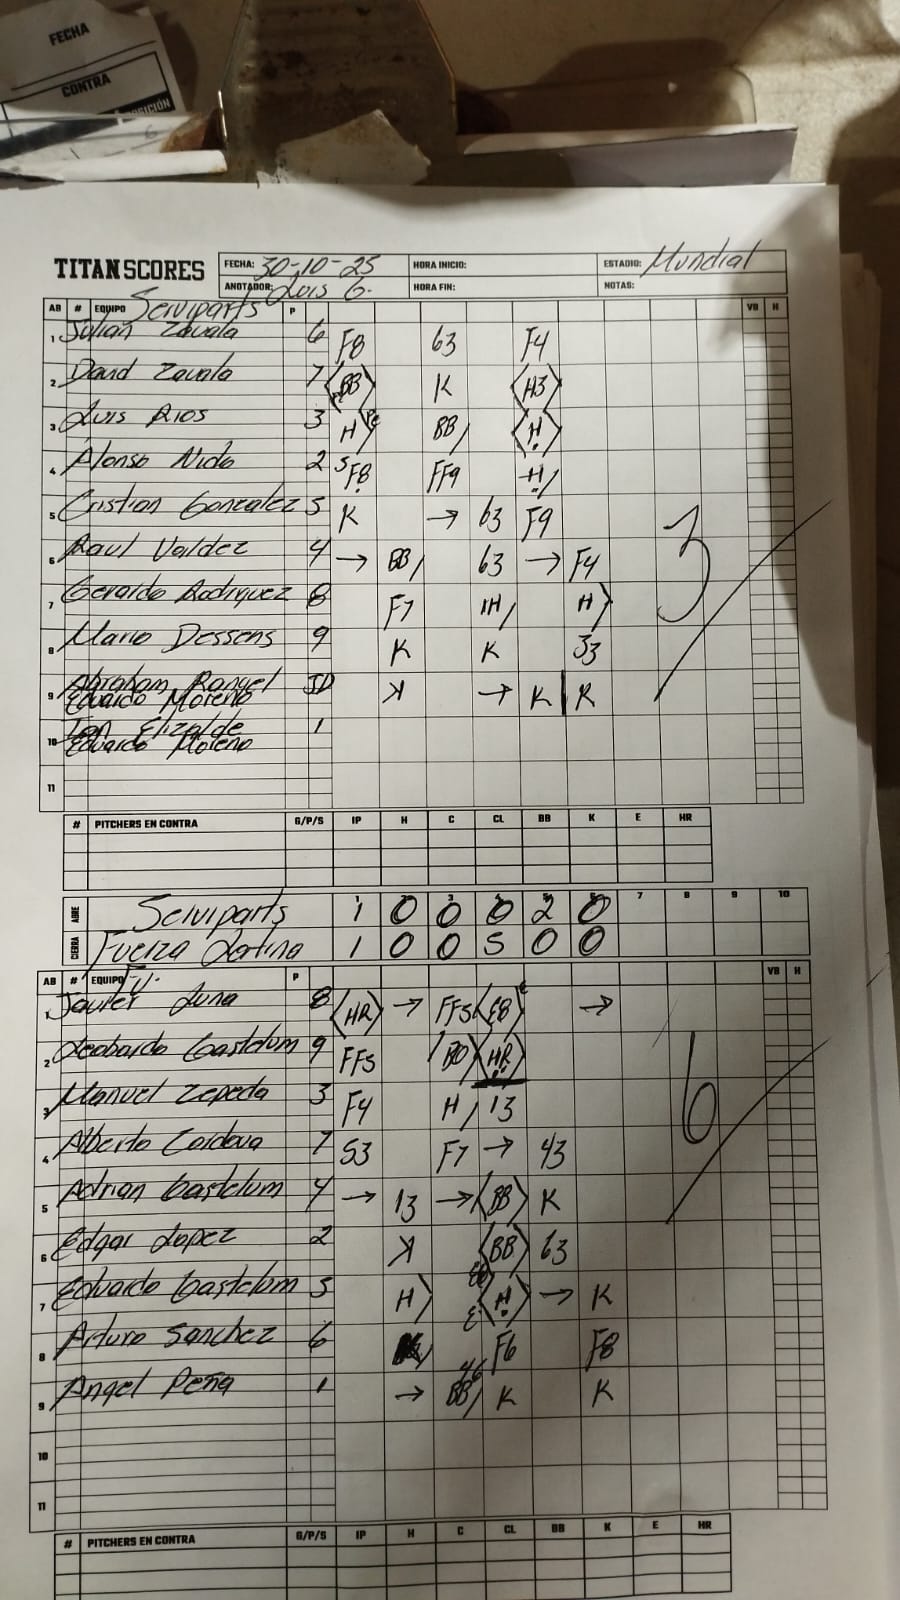 FECHA
CONTRA
TITAN SCORES
FECHA: 30-10-25 HORA INICIO: ESTADIO: Mundial
ANOTADOR: Luis G. HORA FIN: NOTAS:
AB # EQUIPO Serviparts P VB H
1 Julian Zavala 6 F8 63 F4
2 David Zavala 7 BB K H3
3 Luis Rios 3 H BB H
4 Alonso Nido 2 SF8 FF9 H
5 Cristian Gonzalez 5 K → 63 F9
6 Raul Valdez 4 → BB 63 → F4
7 Gerardo Rodriguez 8 F7 1H H
8 Mario Dessens 9 K K 33
9 Abraham Rangel JD K → K K
Eduardo Moreno
10 Ian Elizalde 1
Eduardo Moreno
11
3
# PITCHERS EN CONTRA G/P/S IP H C CL BB K E HR
ABRE Serviparts 1 0 0 0 2 0 7 8 9 10
CIERRA Fuerza Latina 1 0 0 5 0 0
AB # EQUIPO P VB H
1 Javier Luna 8 HR → FF5 E8 →
2 Leobardo Gastelum 9 FF5 BO HR
3 Manuel Zepeda 3 F4 H 13
4 Alberto Cordova 7 53 F7 → 43
5 Adrian Gastelum 4 → 13 → BB K
6 Edgar Lopez 2 K BB 63
7 Eduardo Gastelum 5 H H → K
8 Arturo Sanchez 6 F6 F8
9 Angel Peña 1 → BB 46 K K
10
11
6
# PITCHERS EN CONTRA G/P/S IP H C CL BB K E HR